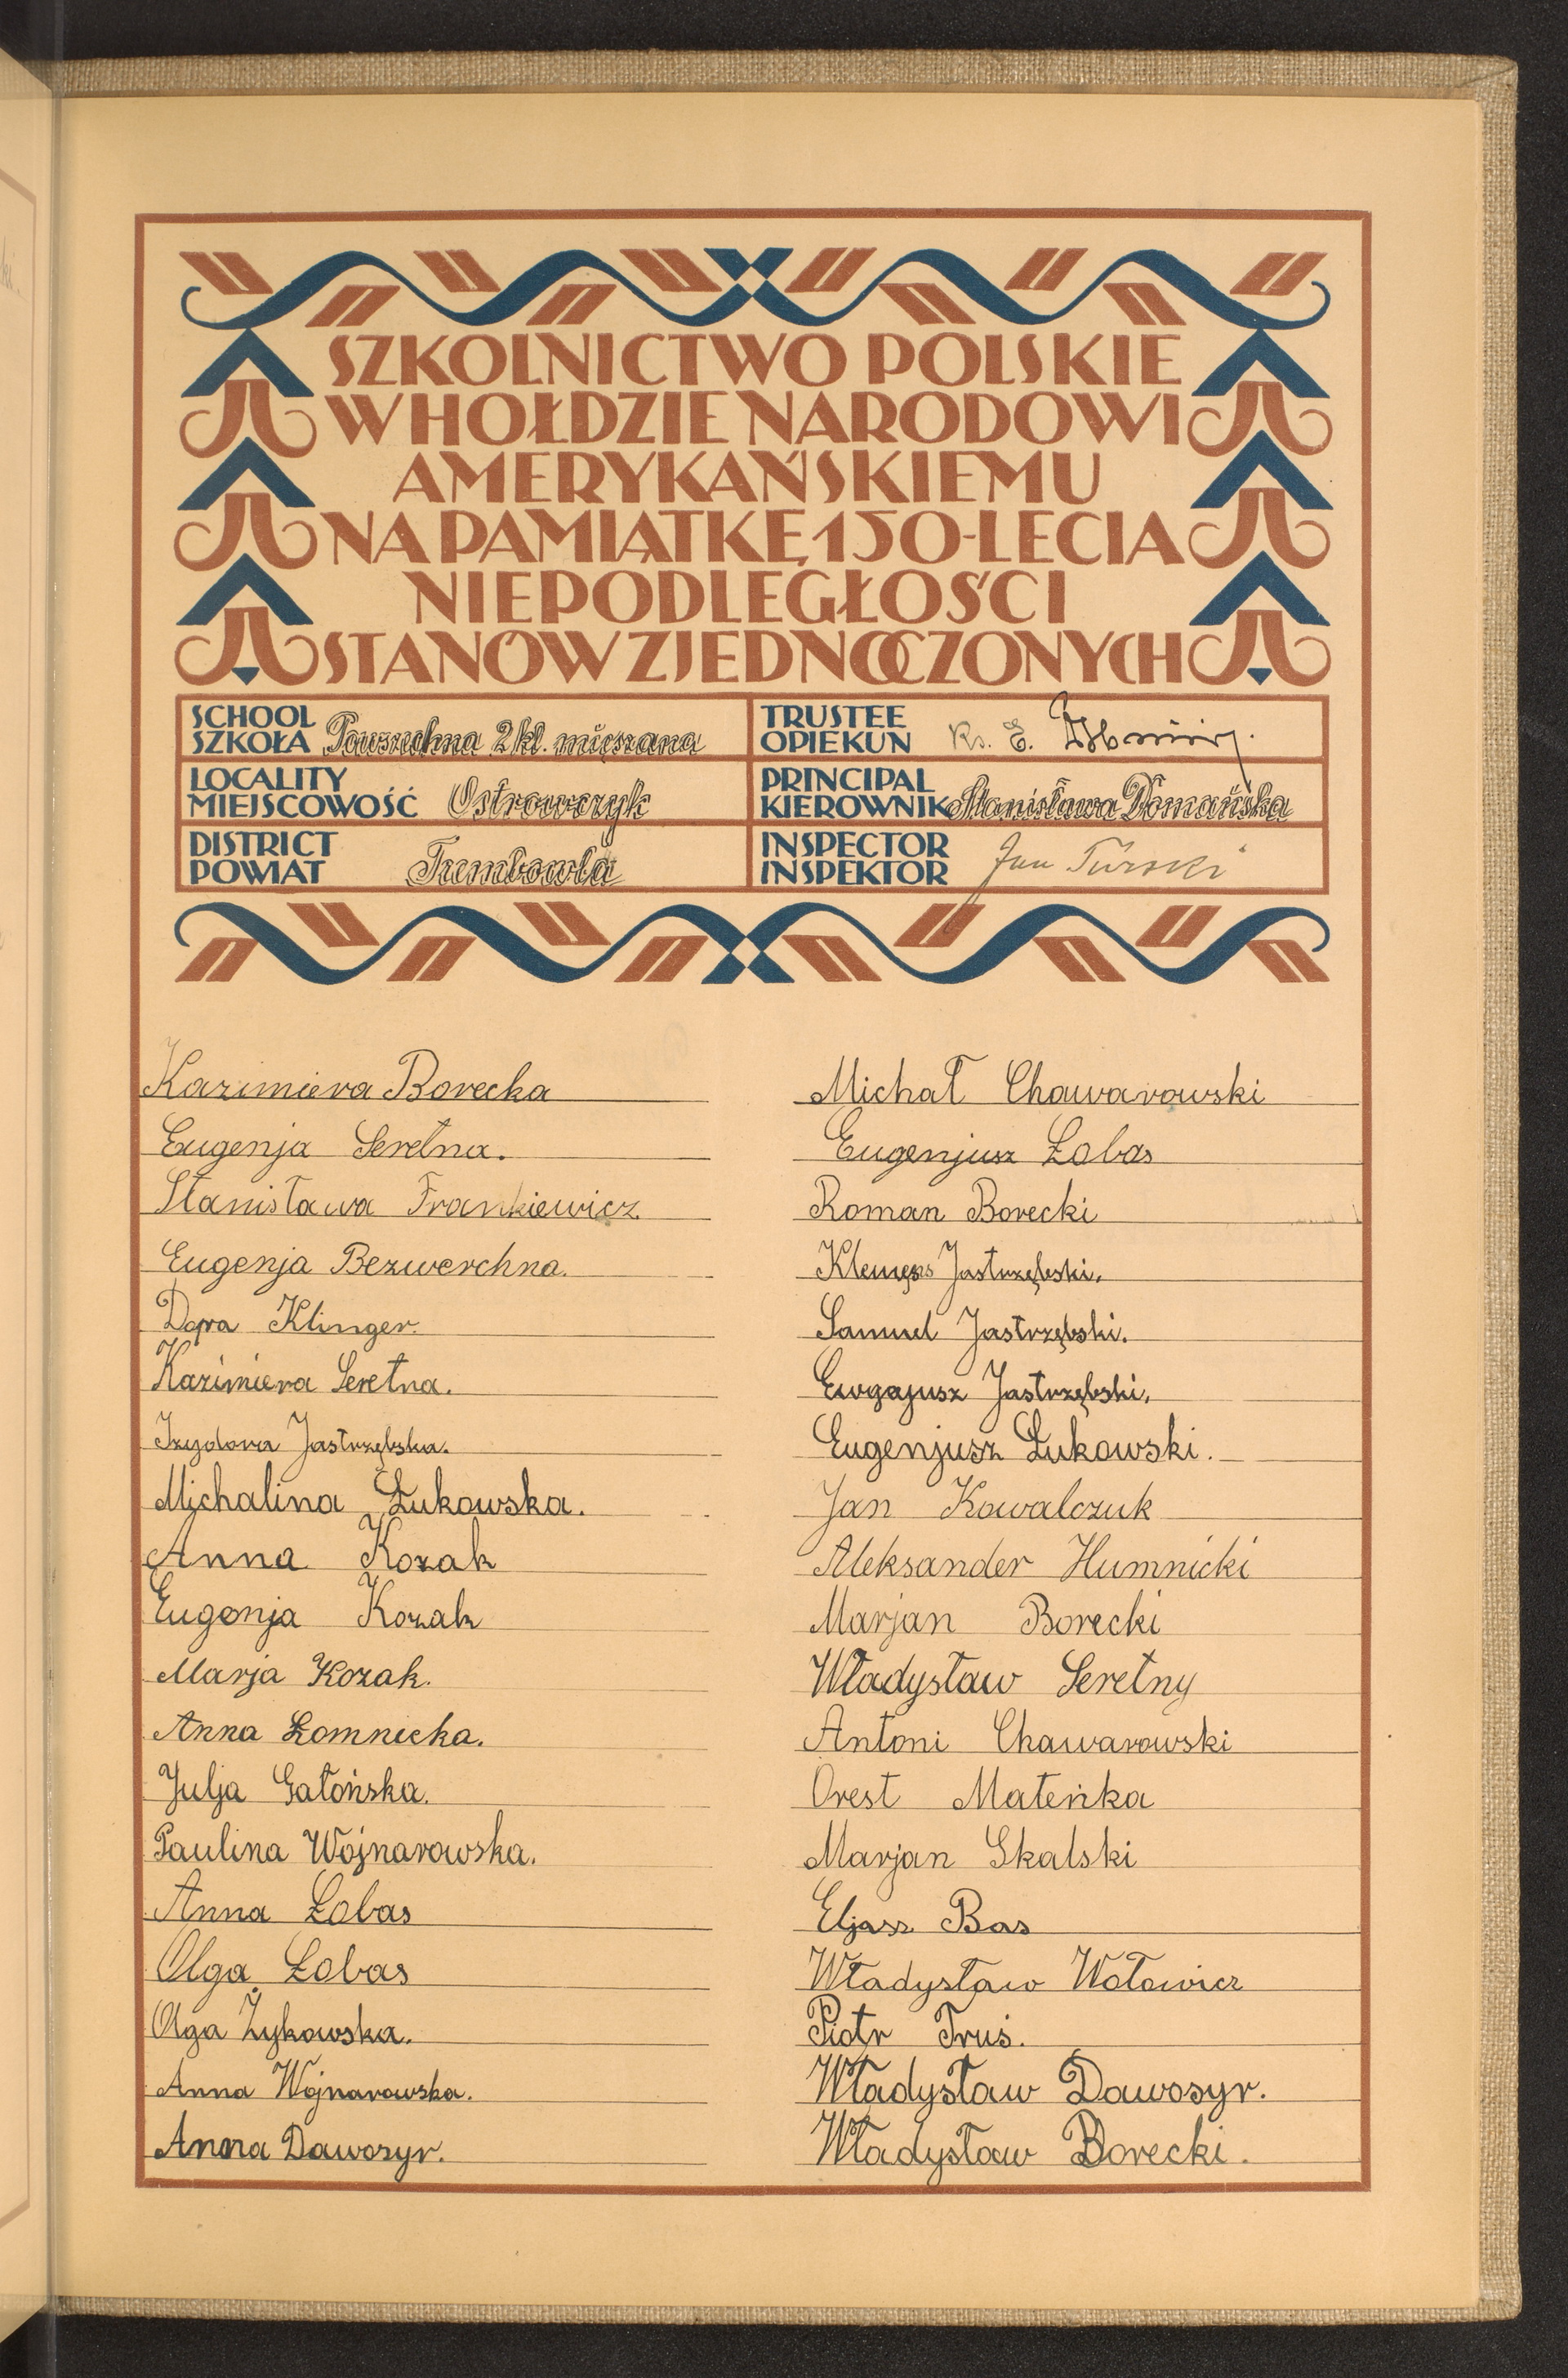 SZKOLNICTWO POLSKIE
W HOŁDZIE NARODOWI
AMERYKAŃSKIEMU
NA PAMIĄTKĘ 150-LECIA
NIEPODLEGŁOŚCI
STANÓW ZJEDNOCZONYCH
SCHOOL
SZKOŁA Powszechna 2 kl. mięszana
TRUSTEE
OPIEKUN Ks. E.
LOCALITY
MIEJSCOWOŚĆ Ostrowczyk
PRINCIPAL
KIEROWNIK Stanisława Domańska
DISTRICT
POWIAT Trembowla
INSPECTOR
INSPEKTOR Jan Turski
Kazimiera Borecka
Eugenja Seretna.
Stanisława Frankiewicz
Eugenja Bezwerchna.
Dora Klinger.
Kazimiera Seretna.
Izydora Jastrzębska.
Michalina Łukowska.
Anna Kozak
Eugenja Kozak
Marja Kozak.
Anna Łomnicka.
Julja Gatońska.
Paulina Wojnarowska.
Anna Łobas
Olga Łobas
Olga Żykowska.
Anna Wojnarowska.
Anna Dawosyr.
Michał Chawarowski
Eugenjusz Łobas
Roman Borecki
Klemęns Jastrzębski.
Samuel Jastrzębski.
Jastrzębski.
Eugenjusz Łukowski.
Jan Kowalczuk
Aleksander Humnicki
Marjan Borecki
Władysław Seretny
Antoni Chawarowski
Orest Mateńka
Marjan Skalski
Eljasz Bas
Władysław Wołowicz
Piotr Truś.
Władysław Dawosyr.
Władysław Borecki.